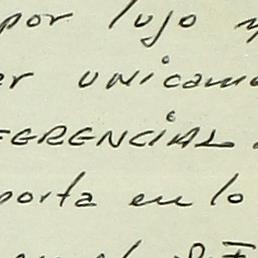 por lujo y
er unicame
FERENCIAL
porta en lo